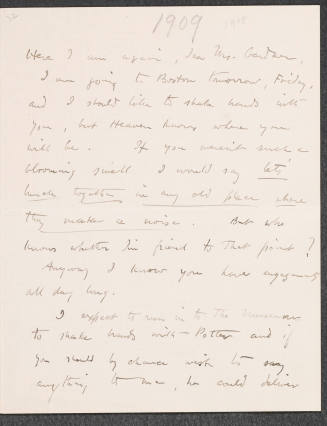 1909
Here I am again, Dear Mrs. Gardner,
I am going to Boston tomorrow, Friday,
and I should like to shake hands with
you, but Heaven knows where you
will be. If you weren't such a
blooming swell I would say let's
lunch together in any old place where
they make a noise. But who
knows whether I'm friend to that point?
Anyway I know you have engagements
all day long.
I expect to run in to the Museum
to shake hands with Potter and if
you should by chance wish to say
anything to me, he could deliver